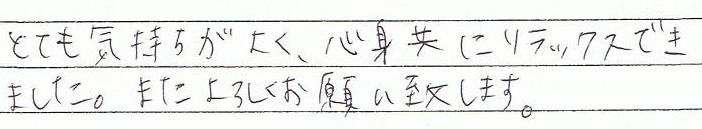 とても気持ちがよく、心身共にリラックスでき
ました。またよろしくお願い致します。